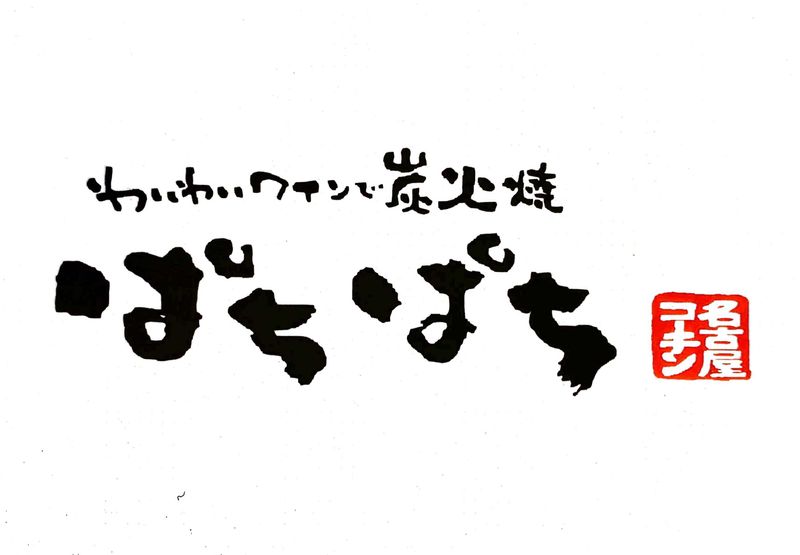 わいわいワインで炭火焼
ぱちぱち
名古屋
コーチン